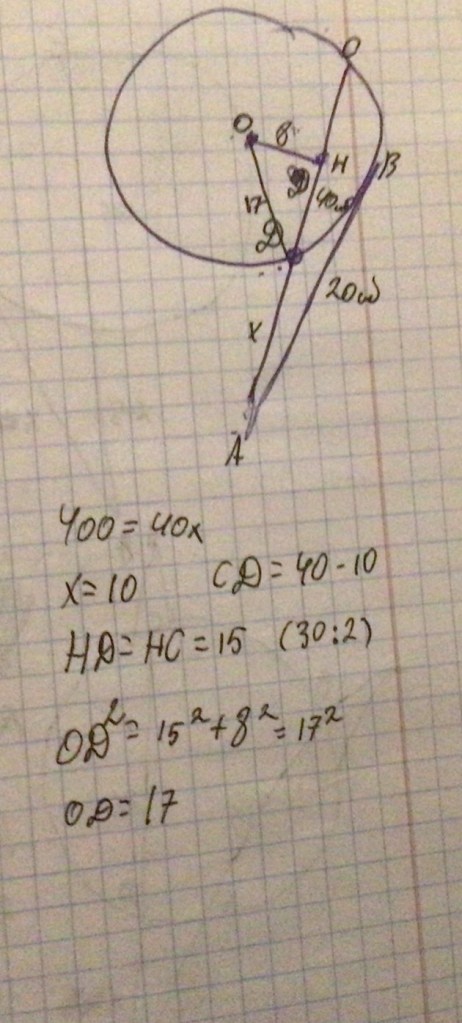 O
O
8
H
B
17
D
40см
20см
x
A
400 = 40x
x = 10 CD = 40 - 10
HD = HC = 15 (30:2)
OD² = 15² + 8² = 17²
OD = 17